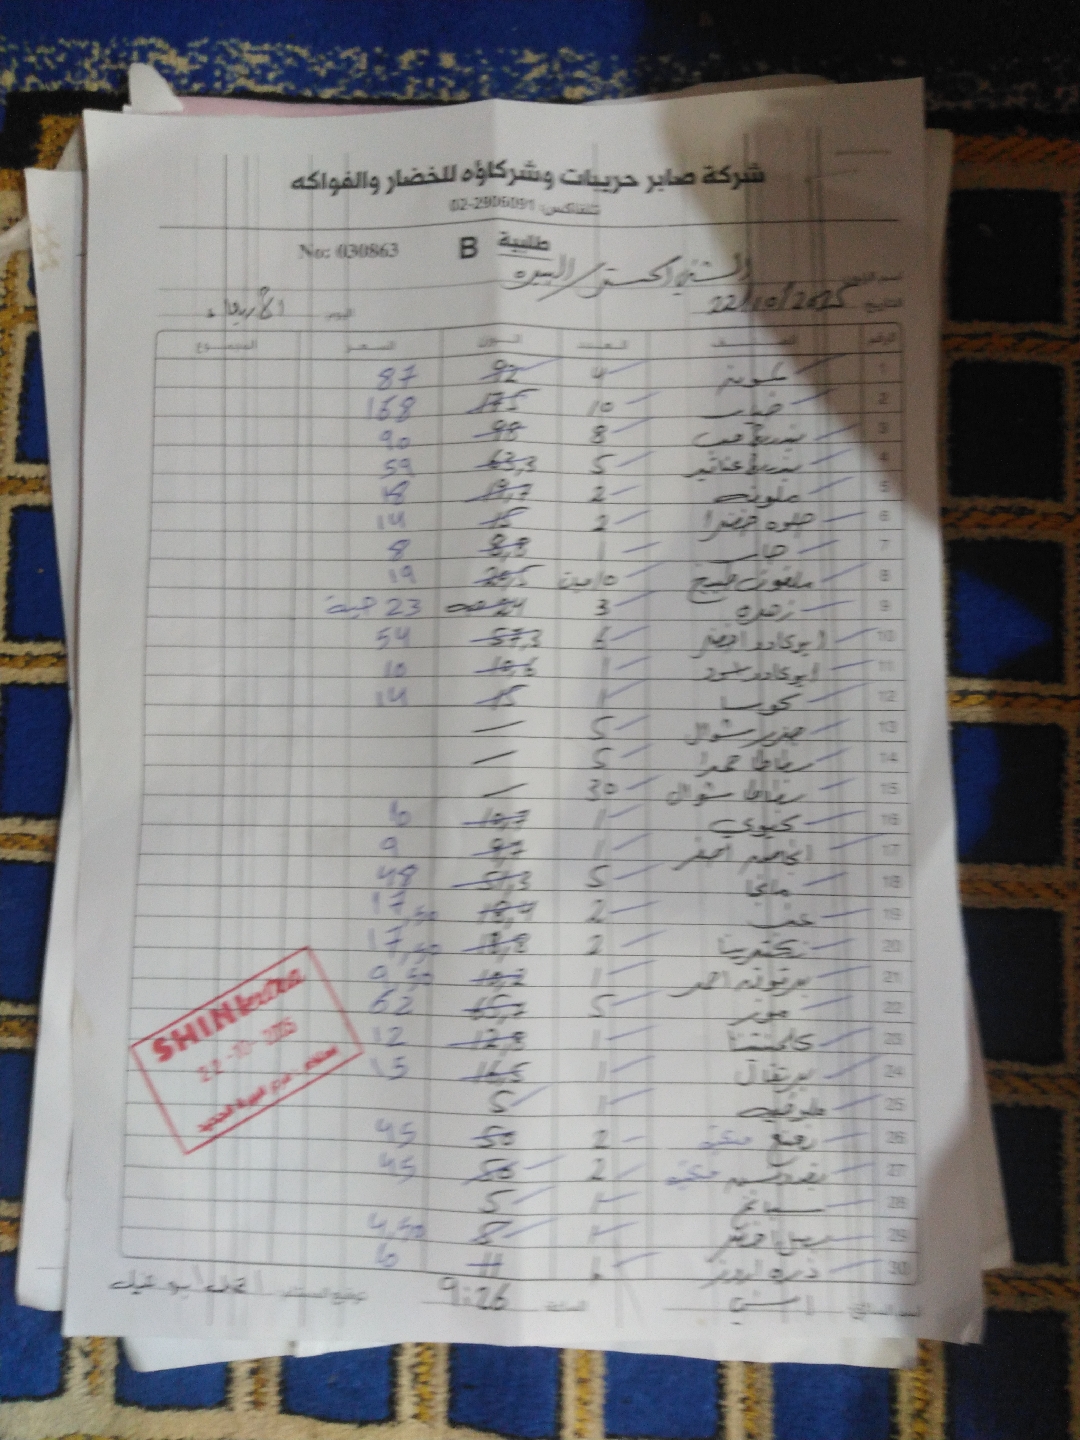 شركة صابر حريبات وشركاؤه للخضار والفواكه
تلفاكس: 02-2906091
No: 030863 B طلبية
اسم الزبون: الشني اكستر/البيره
التاريخ: 22/10/2025 اليوم: الأربعاء
الرقم الصنف العدد الوزن السعر المجموع
1 ليمونة 4 92 87
2 خيار 10 175 168
3 بندورة حب 8 98 90
4 بندورة عناقيد 5 63,3 59
5 ملونه 2 19,7 18
6 حلوه خضرا 2 15 14
7 حار 1 8,8 8
8 ملفوف طبيخ 10 حبت 20,5 19
9 زهره 3 24 حبه 23 حبة
10 ابوكادو اخضر 6 57,3 54
11 ابوكادو اسود 1 10,6 10
12 كوسا 1 15 14
13 جزر شوال 5 —
14 بطاطا حمرا 5 —
15 بطاطا شوال 30 —
16 كيوي 1 10,7 10
17 اجاص اصفر 1 9,7 9
18 مانجا 5 51,3 48
19 عنب 2 18,4 17,50
20 نكتارينا 2 18,8 17,50
21 برقوق احمر 1 10,2 9,50
22 موز 5 65,7 62
23 كلمنتينا 1 12,8 12
24 برتقال 1 16,5 15
25 ملوخيه 1 5
26 2 50 45
27 بقدونس 2 50 45
28 سبانخ 1 5
29 بصل اخضر 1 8 4,50
30 ذره 1 11 10
SHINI extra
22-10-2025
اسم السائق: الساعة 9:26 توقيع المستلم: